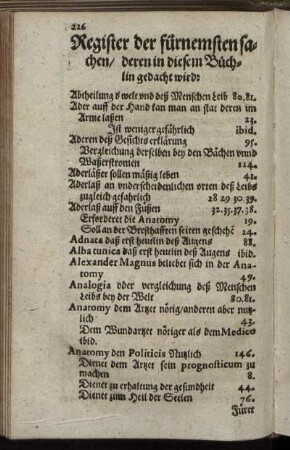 226
Register der fürnemsten sa-
chen/ deren in diesem Büch-
lin gedacht wird:
Abtheilung s welt vnd deß Menschen Leib 80.81.
Ader auff der Hand kan man an stat deren im
Arme laßen 23.
Ist weniger gefährlich ibid.
Aderen deß Gesichts erklärung 95.
Vergleichung derselben bey den Bächen vnnd
Waßerstromen 124.
Aderläßer sollen mäßig leben 41.
Aderlaß an vnderscheidenlichen orten deß Leibs
zugleich gefährlich 28 29 30. 39.
Aderlaß auff den Füßen 32.35.37.38.
Erforderet die Anatomy 19.
Soll an der Bresthafften seiten geschehē 24.
Adnata daß erst heutlin deß Augens 88.
Alba tunica daß erst heutlin deß Augens ibid.
Alexander Magnus beliebet sich in der Ana-
tomy 49.
Analogia oder vergleichung deß Menschen
Leibs bey der Welt 80.81.
Anatomy dem Artzet nötig/ anderen aber nutz-
lich 43.
Dem Wundartzet nötiger als dem Medico
ibid.
Anatomy den Politicis Nutzlich 146.
Dienet dem Artzet sein prognosticum zu
machen 8.
Dienet zu erhaltung der gesundheit 44.
Dienet zum Heil der Seelen 76.
Füret